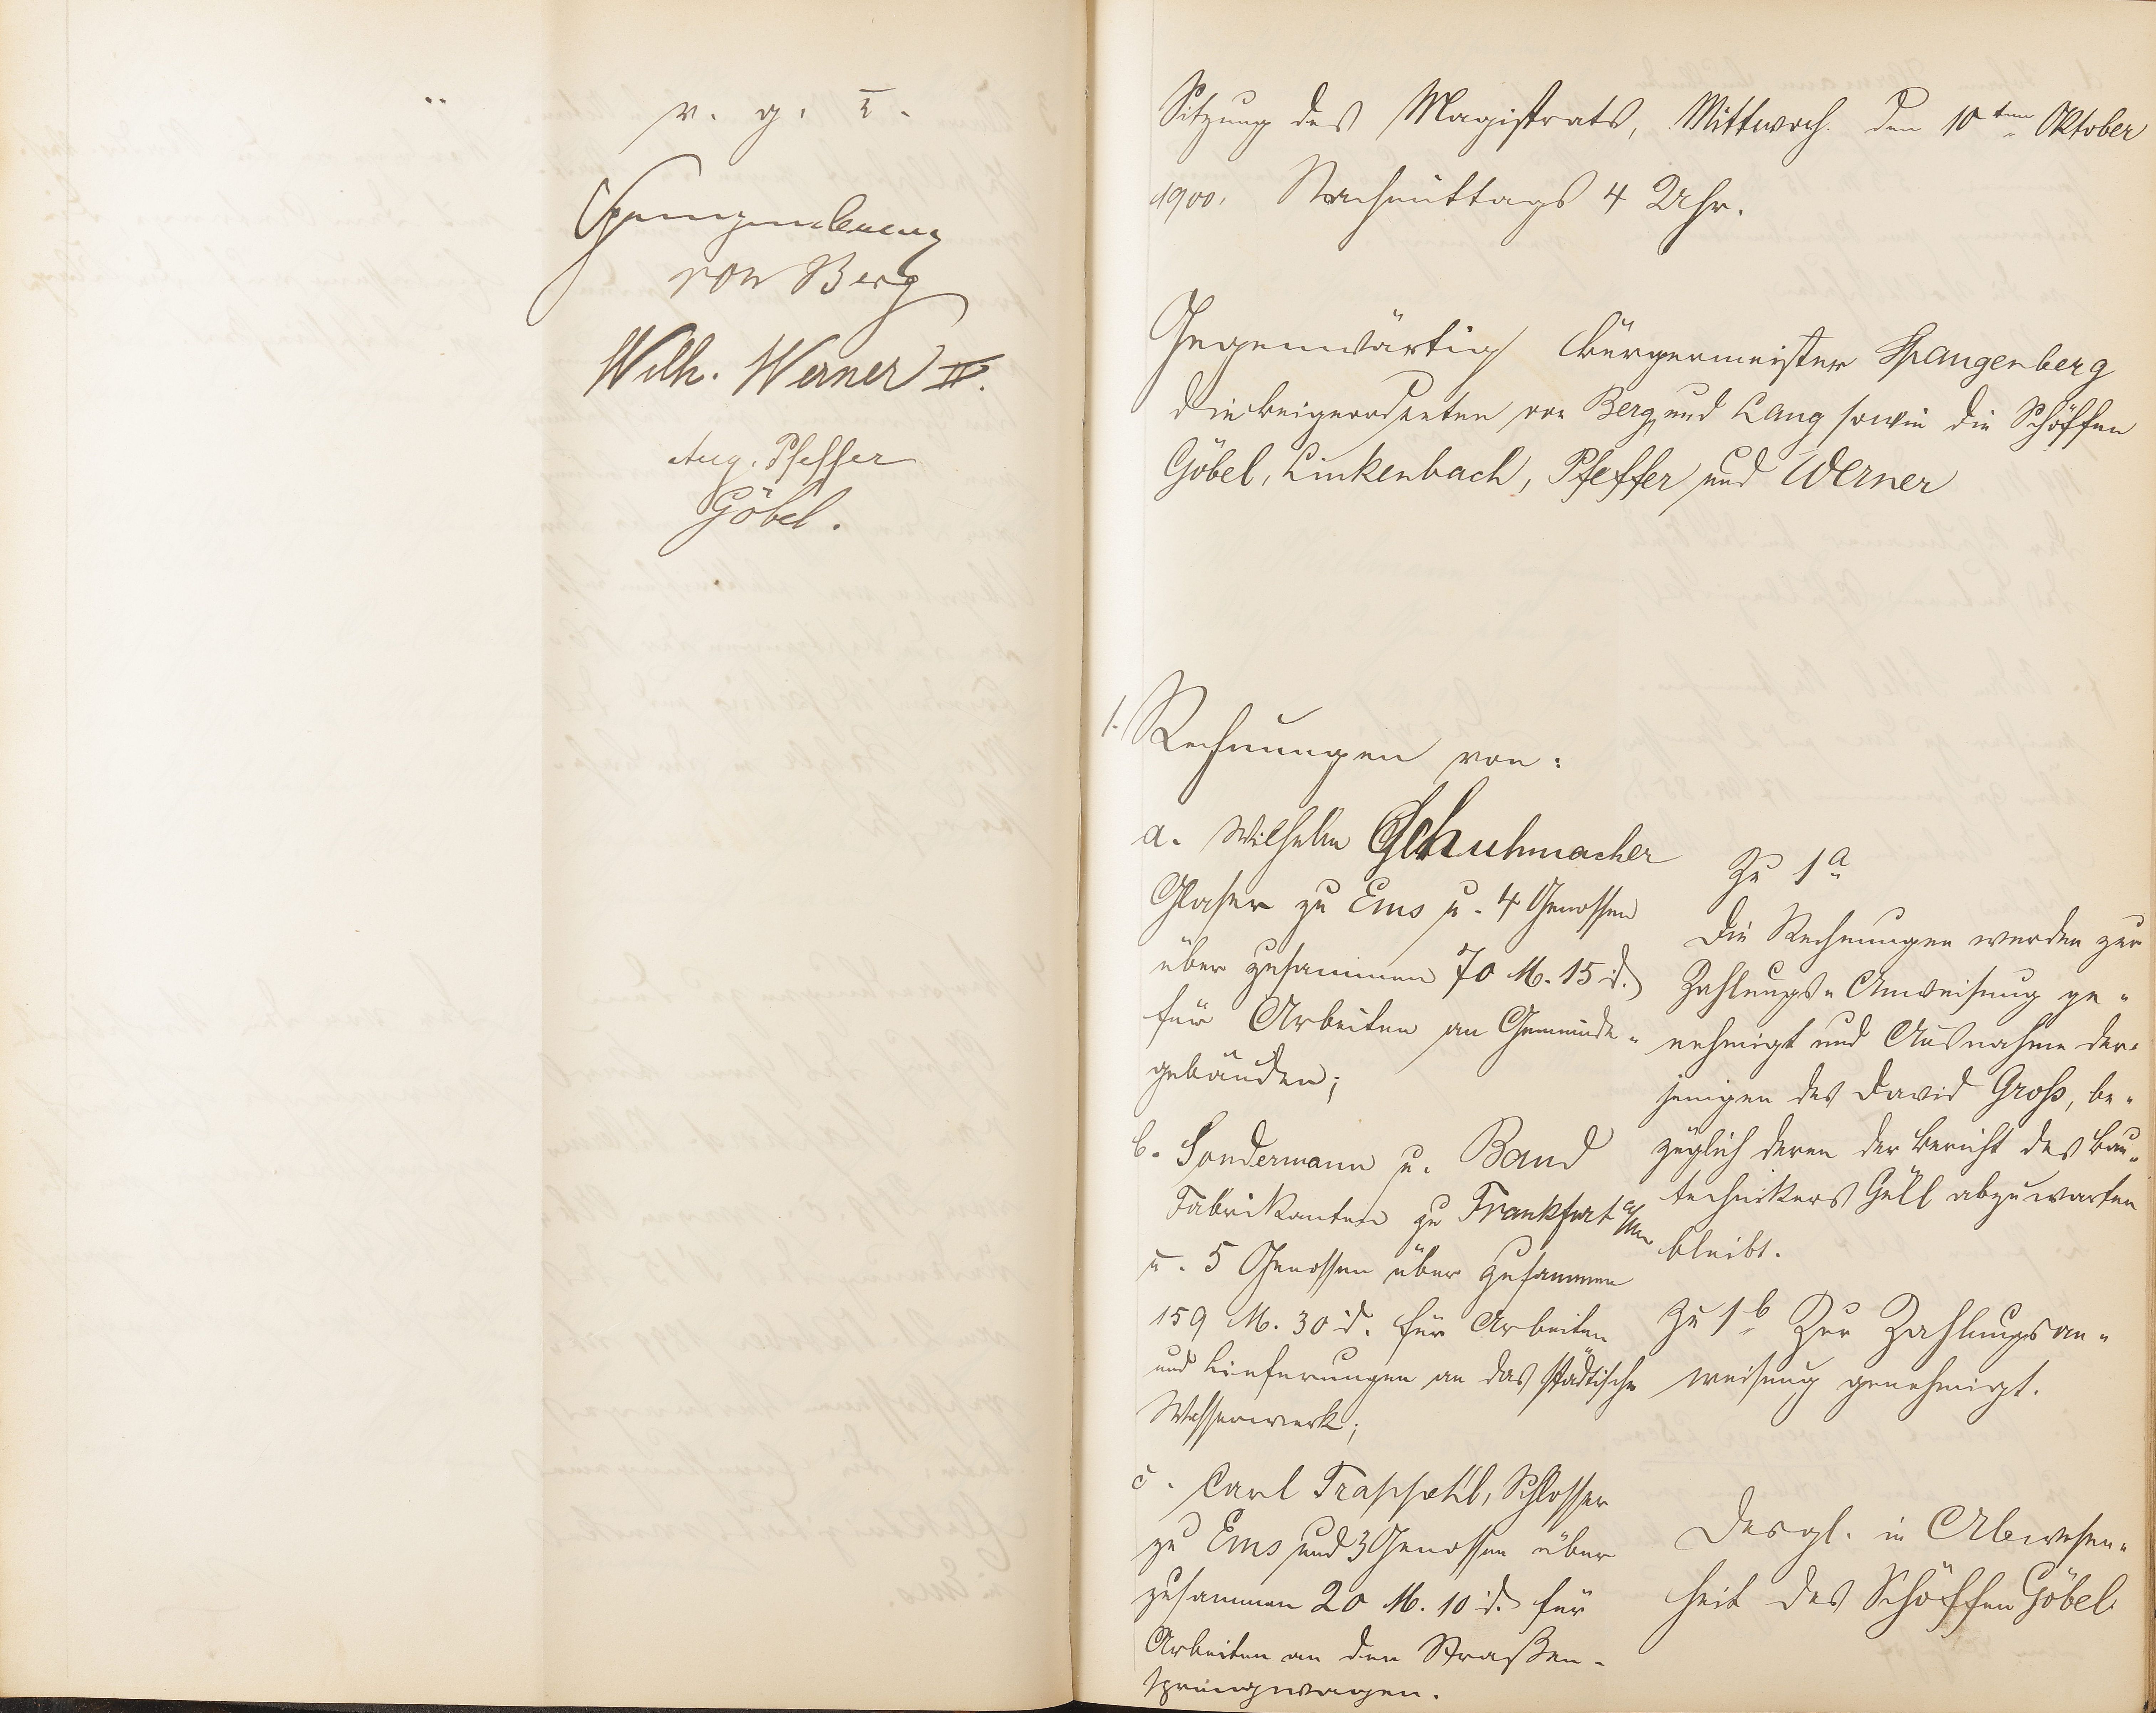 v. g. u.
Spangenberg
von Berg
Wilh. Werner II.
Aug. Pfeffer
Göbel.
Sitzung des Magistrats, Mittwoch den 10ten Oktober
1900, Nachmittags 4 Uhr.
Gegenwärtig Bürgermeister Spangenberg
die Beigeordneten von Berg und Lang sowie die Schöffen
Göbel, Linkenbach, Pfeffer und Werner
1. Rechnungen von:
a. Wilhelm Schuhmacher
Glaser zu Ems u. 4 Genossen
über zusammen 70 M. 15 d.
für Arbeiten an Gemeinde-
gebäuden;
b. Sondermann u. Band
Fabrikanten zu Frankfurt a/M
u. 5 Genossen über zusammen
159 M. 30 d. für Arbeiten
und Lieferungen an das städtische
Wasserwerk;
c. Carl Trappehl, Schlosser
zu Ems und 3 Genossen über
zusammen 20 M. 10 d. für
Arbeiten an den Straßen-
sprengwagen.
Zu 1a
Die Rechnungen werden zur
Zahlungs-Anweisung ge-
nehmigt und Ausnahme der-
jenigen des David Groß, be-
züglich deren der Bericht des Bau-
technikers Güll abzuwarten
bleibt.
Zu 1b Zur Zahlungsan-
weisung genehmigt.
Desgl. in Abwesen-
heit des Schöffen Göbel